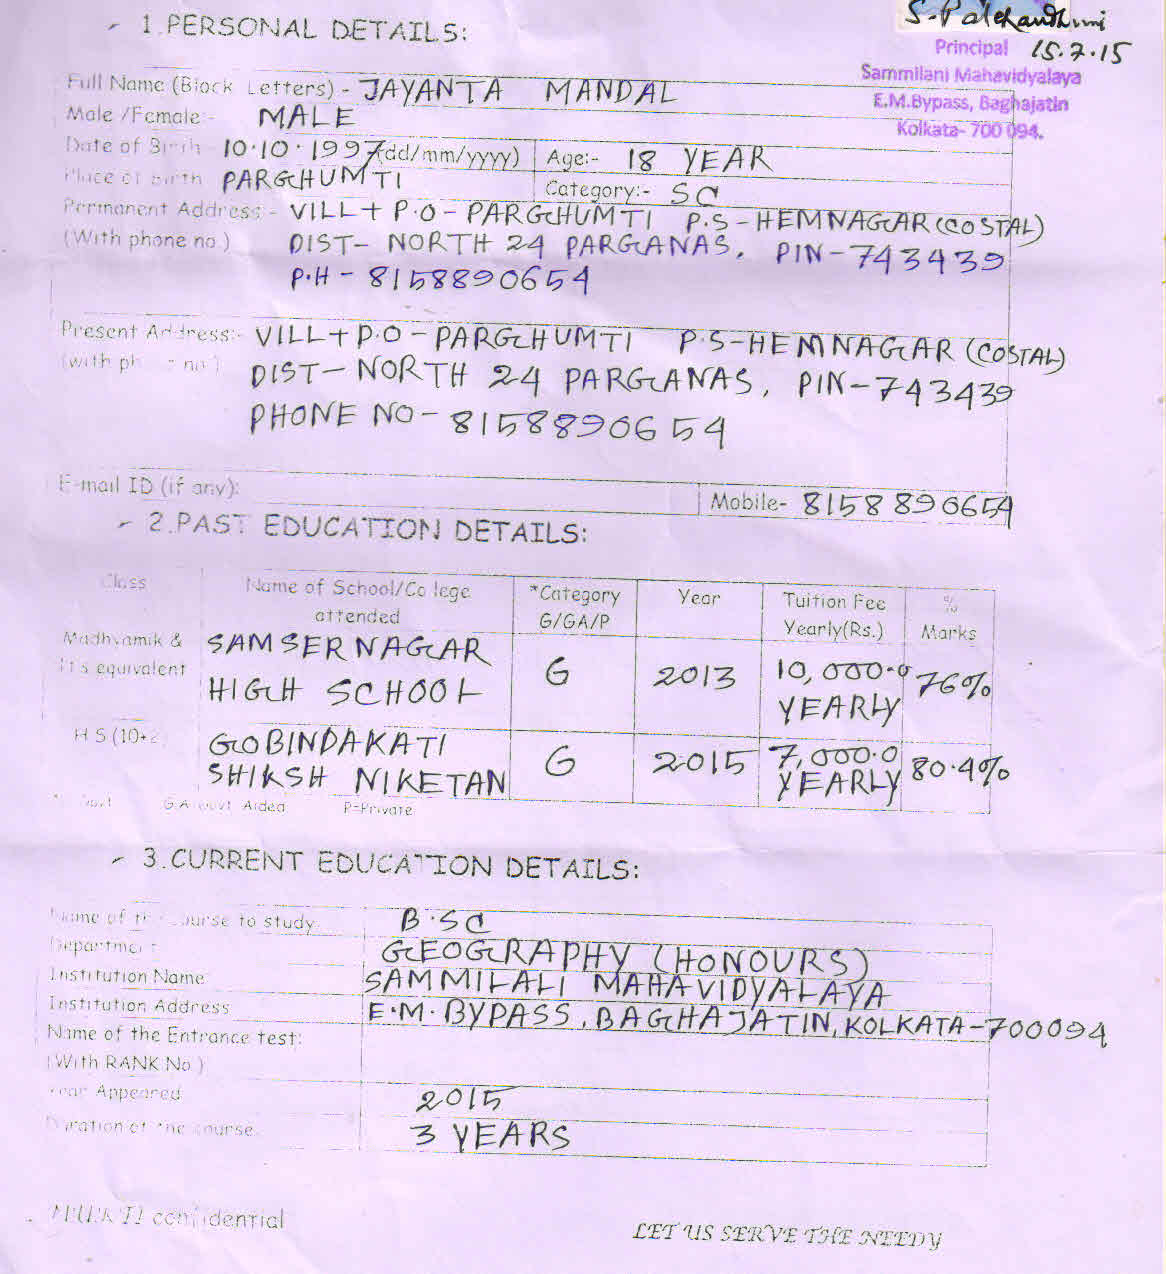 1.PERSONAL DETAILS:
15.7.15
Principal
Sammilani Mahavidyalaya
E.M.Bypass, Baghajatin
Kolkata- 700 094.
Full Name (Block Letters) - JAYANTA MANDAL
Male /Female:- MALE
Date of Birth 10.10.1997 (dd/mm/yyyy) Age:- 18 YEAR
Place of birth PARGHUMTI Category:- SC
Permanent Address - VILL+ P.O - PARGHUMTI P.S - HEMNAGAR (COSTAL)
(With phone no.) DIST- NORTH 24 PARGANAS, PIN-743439
P.H - 8158890654
Present Address:- VILL+P.O-PARGHUMTI P.S-HEMNAGAR (COSTAL)
(with ph no.) DIST- NORTH 24 PARGANAS, PIN-743439
PHONE NO- 8158890654
E-mail ID (if any): Mobile- 8158890654
2.PAST EDUCATION DETAILS:
Class Name of School/College *Category Year Tuition Fee %
attended G/GA/P Yearly(Rs.) Marks
Madhyamik & SAMSERNAGAR G 2013 10,000.0 76%
It's equivalent HIGH SCHOOL YEARLY
H S (10+2 GOBINDAKATI G 2015 7,000.0 80.4%
SHIKSH NIKETAN YEARLY
GA Govt Aided P=Private
3.CURRENT EDUCATION DETAILS:
Name of the course to study B.SC
Department GEOGRAPHY (HONOURS)
Institution Name SAMMILALI MAHAVIDYALAYA
Institution Address E.M. BYPASS, BAGHAJATIN, KOLKATA-700094
Name of the Entrance test:
(With RANK No.)
Year Appeared 2015
Duration of the course 3 YEARS
confidential
LET US SERVE THE NEEDY